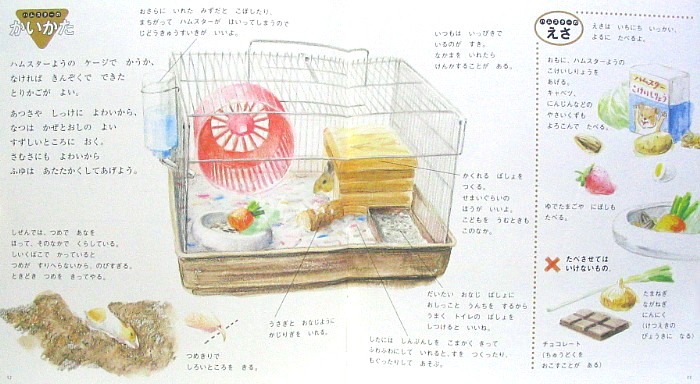 ハムスターの
かいかた
ハムスターようの ケージで かうか、
なければ きんぞくで できた
とりかごが よい。
あつさや しっけに よわいから、
なつは かぜとおしの よい
すずしいところに おく。
さむさにも よわいから
ふゆは あたたかくしてあげよう。
しぜんでは、つめで あなを
ほって、そのなかで くらしている。
しいくばこで かっていると
つめが すりへらないから、のびすぎる。
ときどき つめを きってやる。
おさらに いれた みずだと こぼしたり、
まちがって ハムスターが はいってしまうので
じどうきゅうすいきが いいよ。
いつもは いっぴきで
いるのが すき。
なかまを いれたら
けんかすることが ある。
かくれる ばしょを
つくる。
せまいぐらいの
ほうが いいよ。
こどもを うむときも
このなか。
つめきりで
しろいところを きる。
うさぎと おなじように
かじりぎを いれる。
だいたい おなじ ばしょに
おしっこと うんちを するから
うまく トイレの ばしょを
しつけると いいね。
したには しんぶんしを こまかく きって
ふわふわにして いれると、すを つくったり、
もぐったりして あそぶ。
12
ハムスターの
えさ
えさは いちにち いっかい、
よるに たべるよ。
おもに、ハムスターようの
こけいしりょうを
あげる。
キャベツ、
にんじんなどの
やさいくずも
よろこんで たべる。
ハムスター
こけいしりょう
ゆでたまごや にぼしも
たべる。
たべさせては
いけないもの。
たまねぎ
ながねぎ
にんにく
(けつえきの
びょうきに なる)
チョコレート
(ちゅうどくを
おこすことが ある)